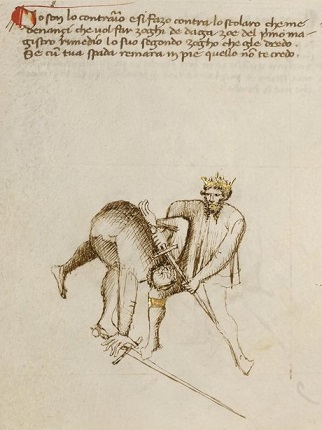 Io son lo contrario e si fazo contra lo scolaro che me
denançi che vol far zoghi de daga zoe del primo ma-
gistro rimedio lo suo segondo zogho che gle dredo.
Se cum tua spada remara in pie quello non te credo.